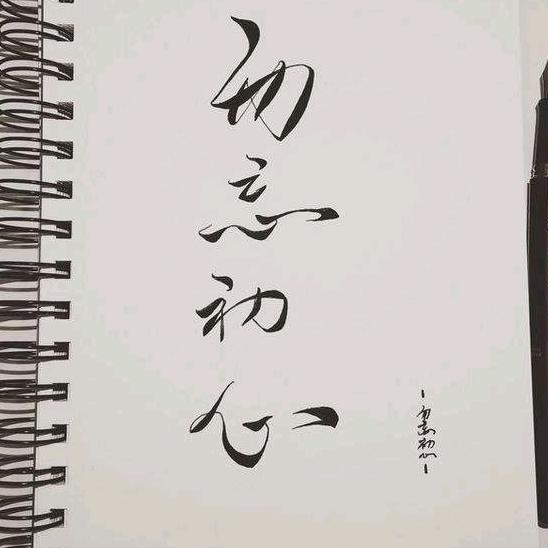 勿忘初心
- 勿忘初心 -